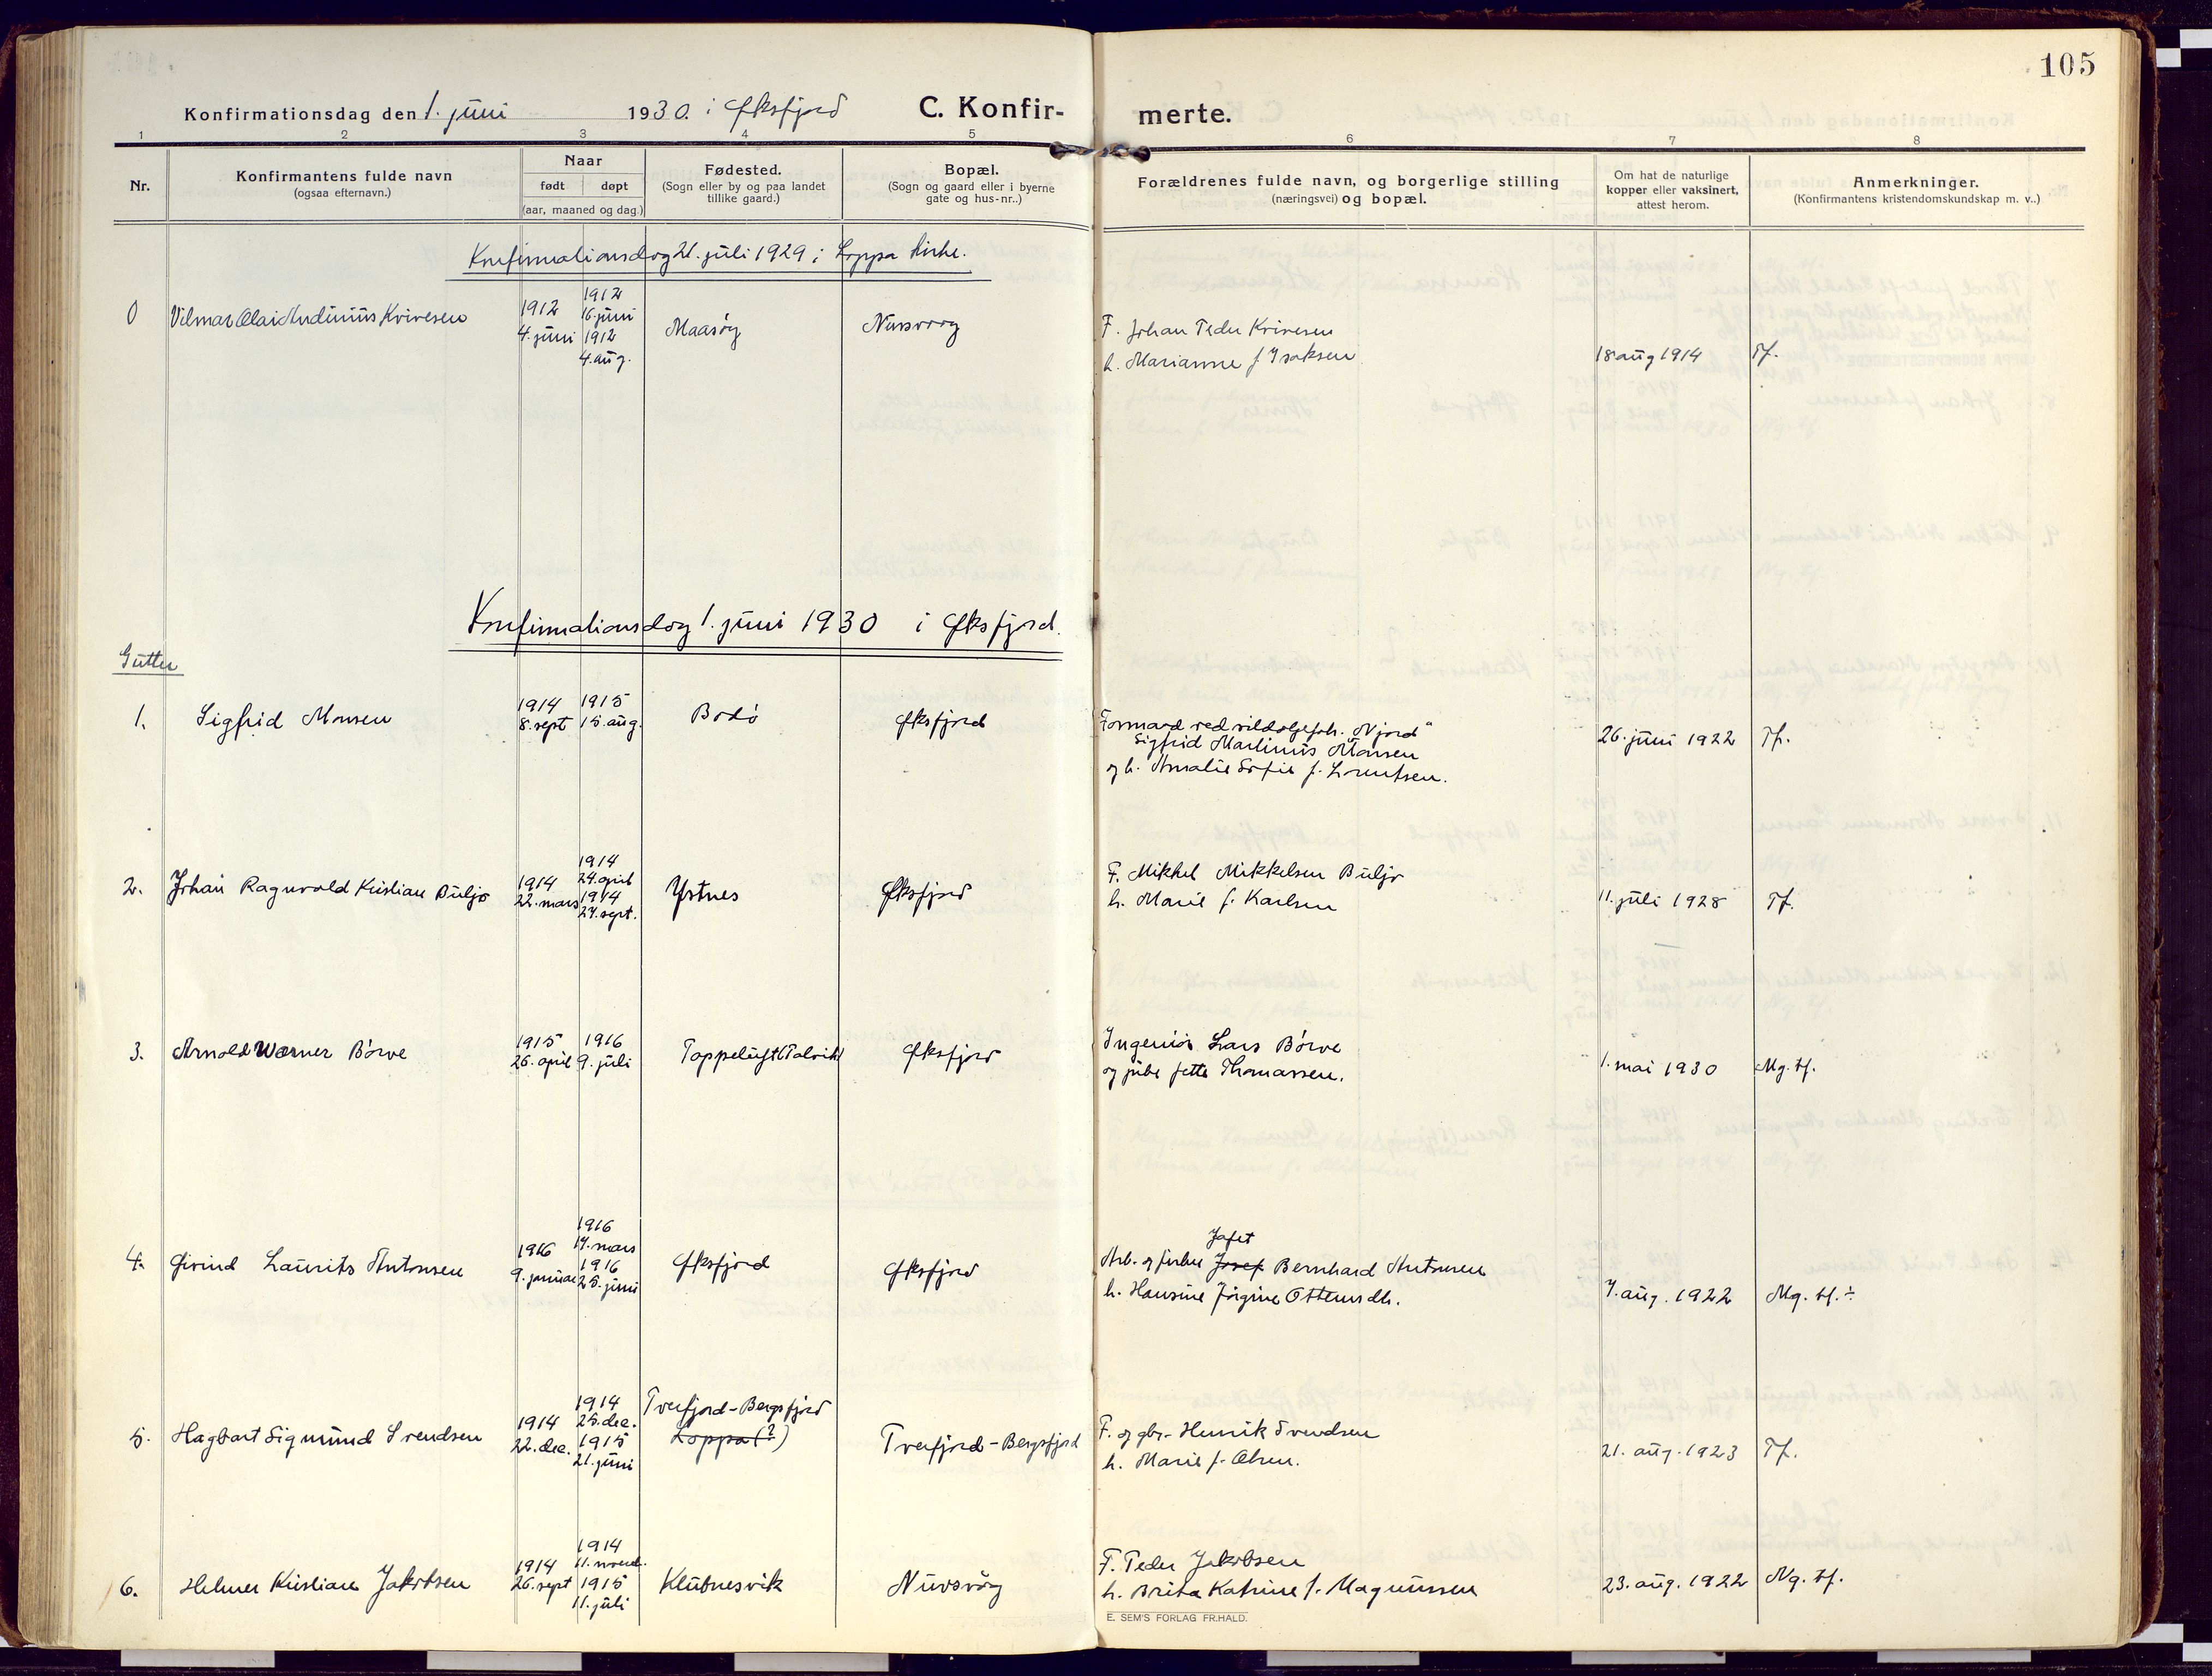 105
Konfirmationsdag den 1. juni 1930. i Øksfjord
C. Konfir-
merte.
1 2 3 4 5 6 7 8
Nr.
Konfirmantens fulde navn
(ogsaa efternavn.)
Naar
født døpt
(aar, maaned og dag.)
Fødested.
(Sogn eller by og paa landet
tillike gaard.)
Bopæl.
(Sogn og gaard eller i byerne
gate og hus-nr..)
Forældrenes fulde navn, og borgerlige stilling
(næringsvei) og bopæl.
Om hat de naturlige
kopper eller vaksinert,
attest herom.
Anmerkninger.
(Konfirmantens kristendomskundskap m. v..)
Konfirmationsdag 21. juli 1929 i Loppa kirke.
0 Vilmar Olai Andinius Kvivesen
1912
4. juni
1912
16. juni
1912
4. aug.
Maasøy
Nuvsvaag
F. Johan Peder Kvivesen
h. Marianne f. Isaksen
18 aug 1914
Tf.
Konfirmationsdag 1. juni 1930 i Øksfjord.
Gutter
1. Sigfrid Monsen
1914
8. sept
1915
15. aug.
Bodø
Øksfjord
Formand ved sildoljefab. "Njord"
Sigfrid Martinus Monsen
og h. Amalie Sofie f. Lorentsen.
26. juni 1922
Tf.
2. Johan Ragnvald Kristian Buljo
1914
22. mars
1914
24. april
1914
27. sept.
Ystnes
Øksfjord
F. Mikkel Mikkelsen Buljo
h. Marie f. Karlsen
11. juli 1928
Tf.
3. Arnold Warner Börve
1915
26. april
1916
9. juli
Toppeluft (Talvik)
Øksfjord
Ingeniör Lars Börve
og pike Jette Thomassen.
1. mai 1930
Mg. tf.
4. Øivind Laurits Antonsen
1916
9. januar
1916
17. mars
1916
25. juni
Øksfjord
Øksfjord
Jafet
Arb. og fisker Josef Bernhard Antonsen
h. Hansine Jörgine Ottensdtr.
7. aug. 1922
Mg. tf. ÷
5. Hagbart Sigmund Svendsen
1914
22. dec.
1914
28. dec.
1915
21. juni
Tverfjord-Bergsfjord
Loppa (?)
Tverfjord-Bergsfjord
F. og gbr. Henrik Svendsen
h. Marie f. Olsen.
21. aug. 1923
Tf.
6. Helmer Kristian Jakobsen
1914
26. sept
1914
11. novem.
1915
11. juli
Klubnesvik
Nuvsvåg
F. Peder Jakobsen
h. Brita Katrine f. Magnussen
23. aug. 1922
Ng. tf.
E. SEM'S FORLAG FR.HALD.